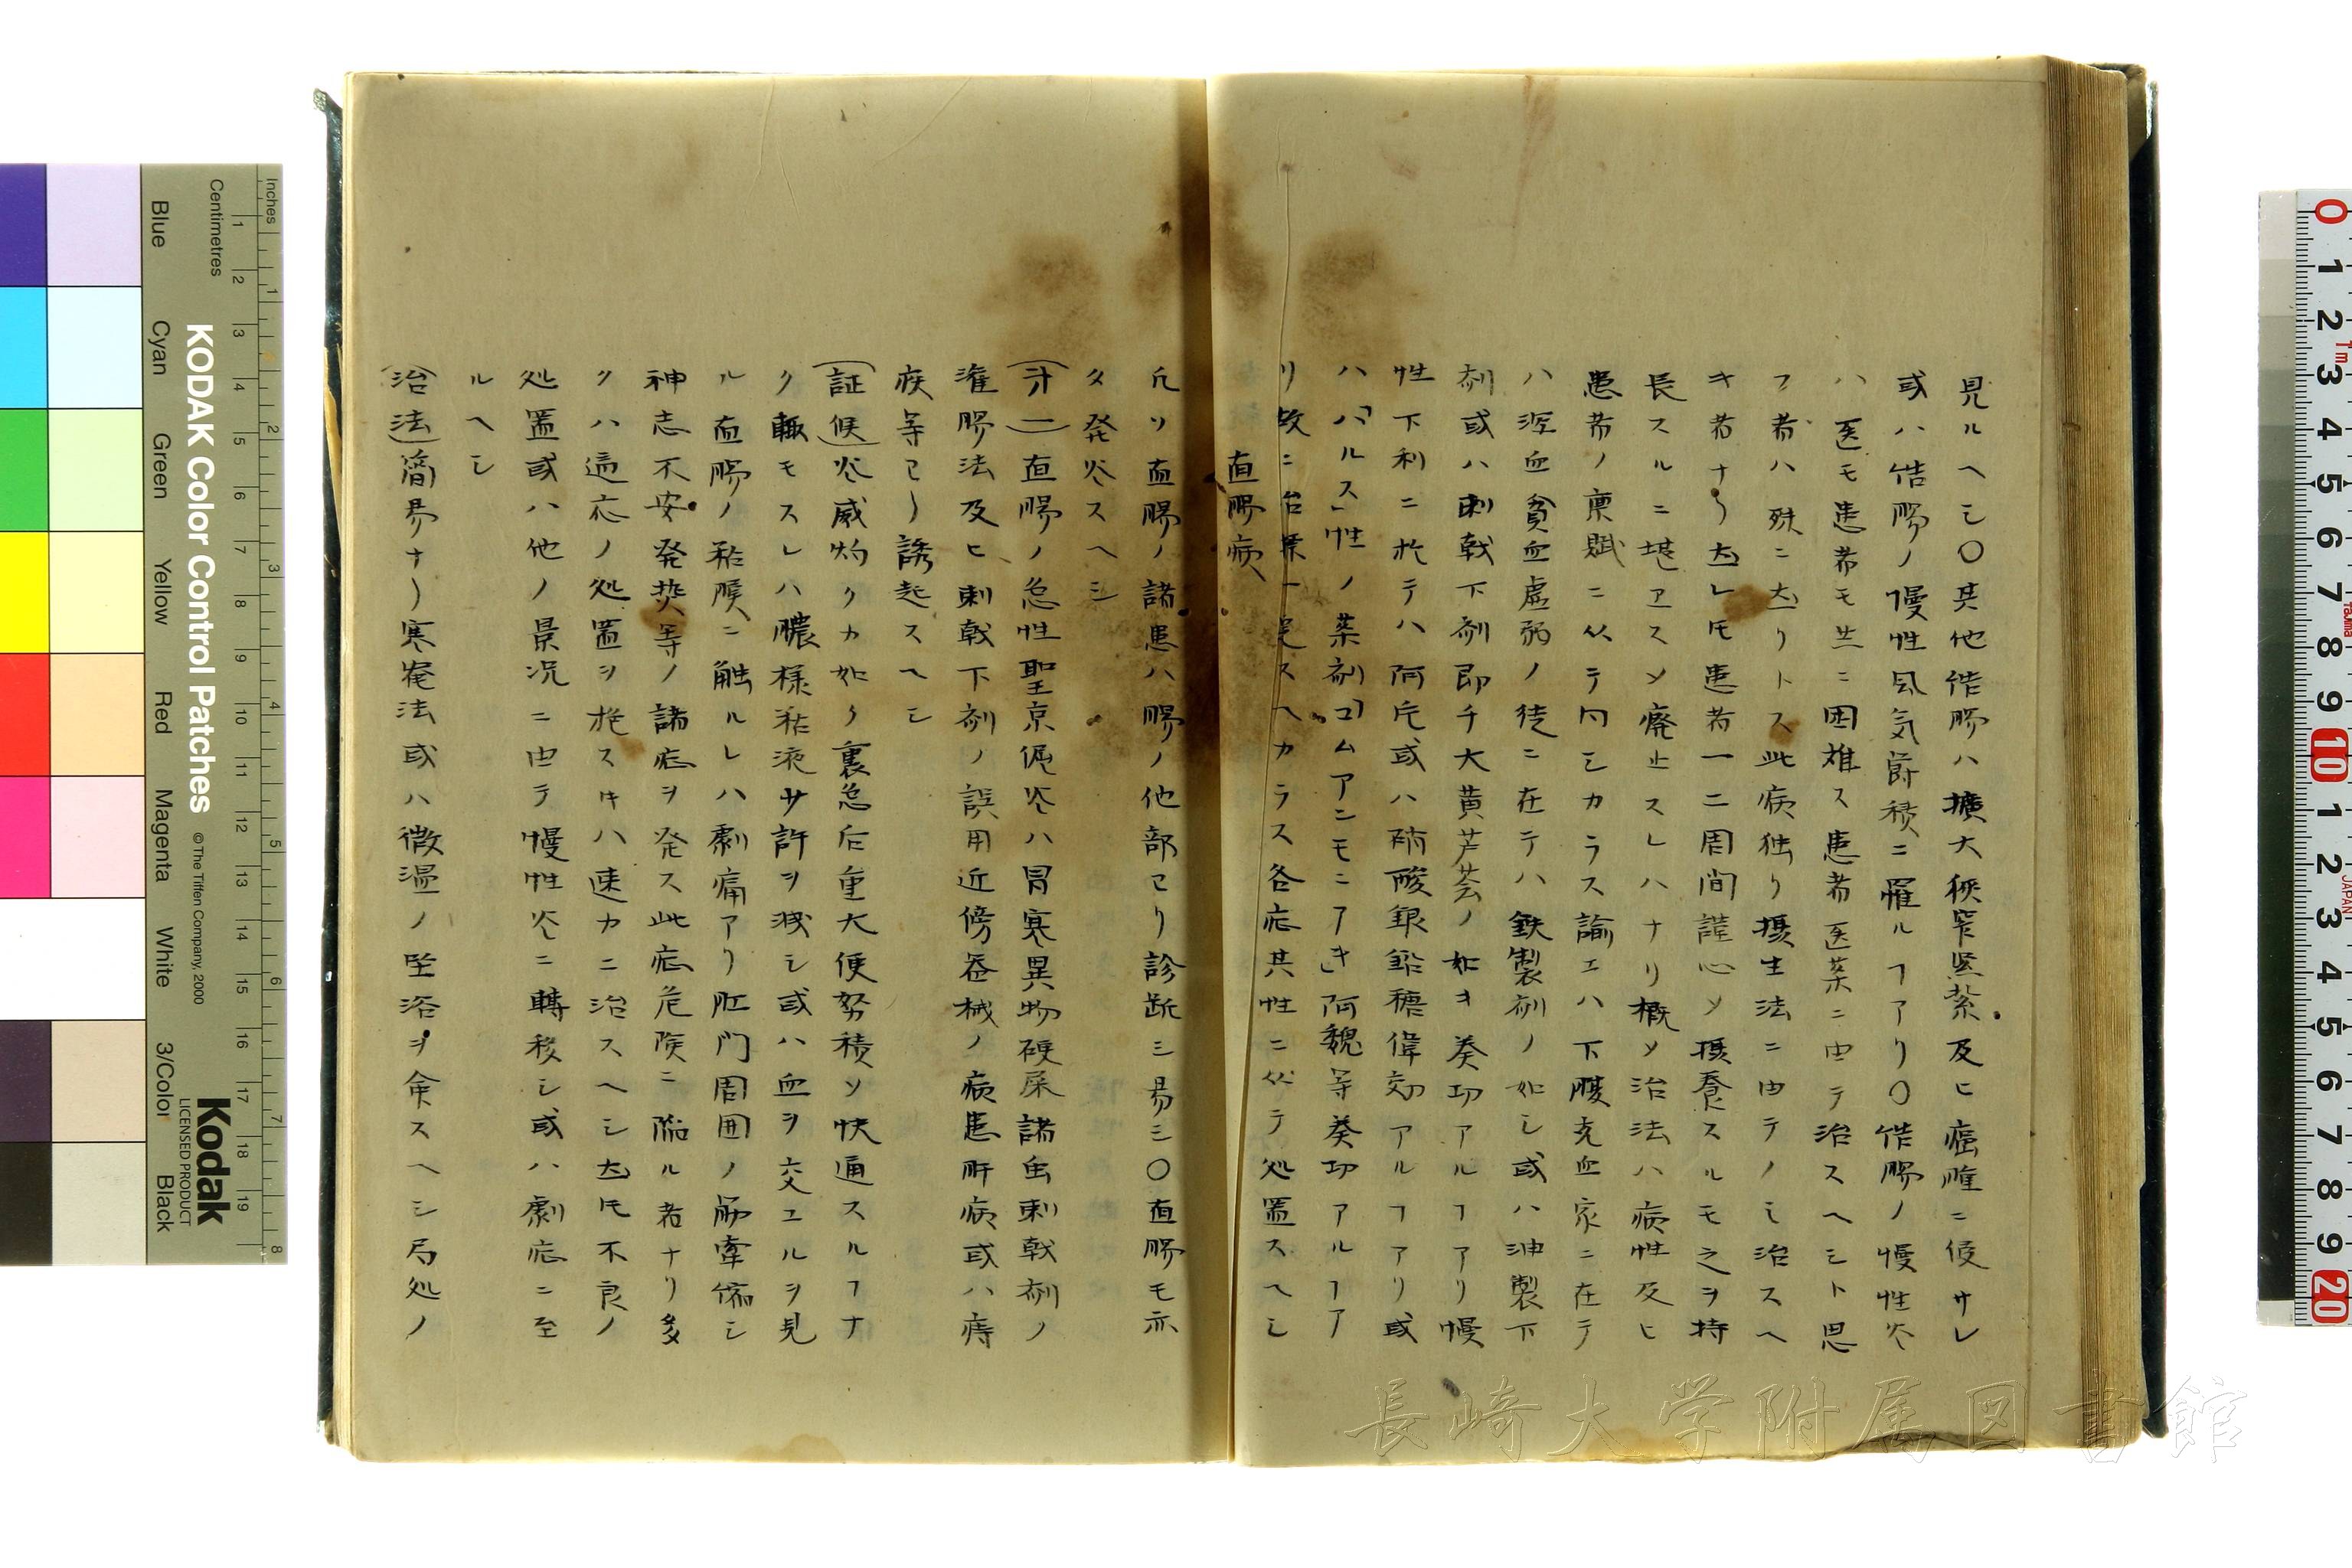 見ルヘシ〇其他結腸ハ擴大狭窄緊紮及ヒ癌腫ニ侵サレ
或ハ結腸ノ慢性風気欝積ニ罹ルヿアリ〇結腸ノ慢性炎
ハ医モ患者モ共ニ困難ス患者医薬ニ由テ治スヘシト思
フ者ハ殊ニ
此病独リ摂生法ニ由テノミ治スヘ
キ者ナリ
患者一二周間謹心ソ摂養スルモ之ヲ持
長スルニ堪エスソ廃止スレハナリ概ソ治法ハ病性及ヒ
患者ノ稟賦ニ从テ同シカラス諭エハ下腹充血家ニ在テ
ハ瀉血貧血虚弱ノ徒ニ在テハ鉄製剤ノ如シ或ハ油製下
剤或ハ刺戟下剤即チ大黄芦薈ノ如キ奏功アルヿアリ慢
性下利ニ於テハ阿片或ハ硝酸銀鉛糖偉効アルヿアリ或
ハ「バルス」性ノ薬剤「コムアンモニアキ」阿魏等奏功アルヿア
リ故ニ治業一定スヘカラス各症其性ニ从テ処置スヘシ
直腸病
凡ソ直腸ノ諸患ハ腸ノ他部ヨリ診断シ易シ〇直腸モ亦
タ発炎スヘシ
(才一)直腸ノ急性聖京偲炎ハ冒寒異物硬屎諸虫刺戟剤ノ
潅腸法及ヒ刺戟下剤ノ誤用近傍器械ノ病患肝病或ハ痔
疾等ヨリ誘起スヘシ
(証候)炎威灼クカ如ク裏急后重大便努積ソ快通スルヿナ
ク輙モスレハ膿様粘液サ許ヲ洩シ或ハ血ヲ交エルヲ見
ル直腸ノ粘膜ニ触ルレハ劇痛アリ肛門周囲ノ筋牽縮シ
神志不安発𤍠等ノ諸症ヲ発ス此症危険ニ陥ル者ナリ多
クハ適応ノ処置ヲ施スキハ速カニ治スヘシ
不良ノ
処置或ハ他ノ景況ニ由テ慢性炎ニ轉移シ或ハ劇症ニ至
ルヘシ
(治法)簡易ナリ寒罨法或ハ微温ノ坐浴ヲ命スヘシ局処ノ
KODAK Color Control Patches
©The Tiffen Company, 2000
Kodak
LICENSED PRODUCT
Inches
Centimetres
Blue
Cyan
Green
Yellow
Red
Magenta
White
3/Color
Black
長崎大学附属図書館
JAPAN